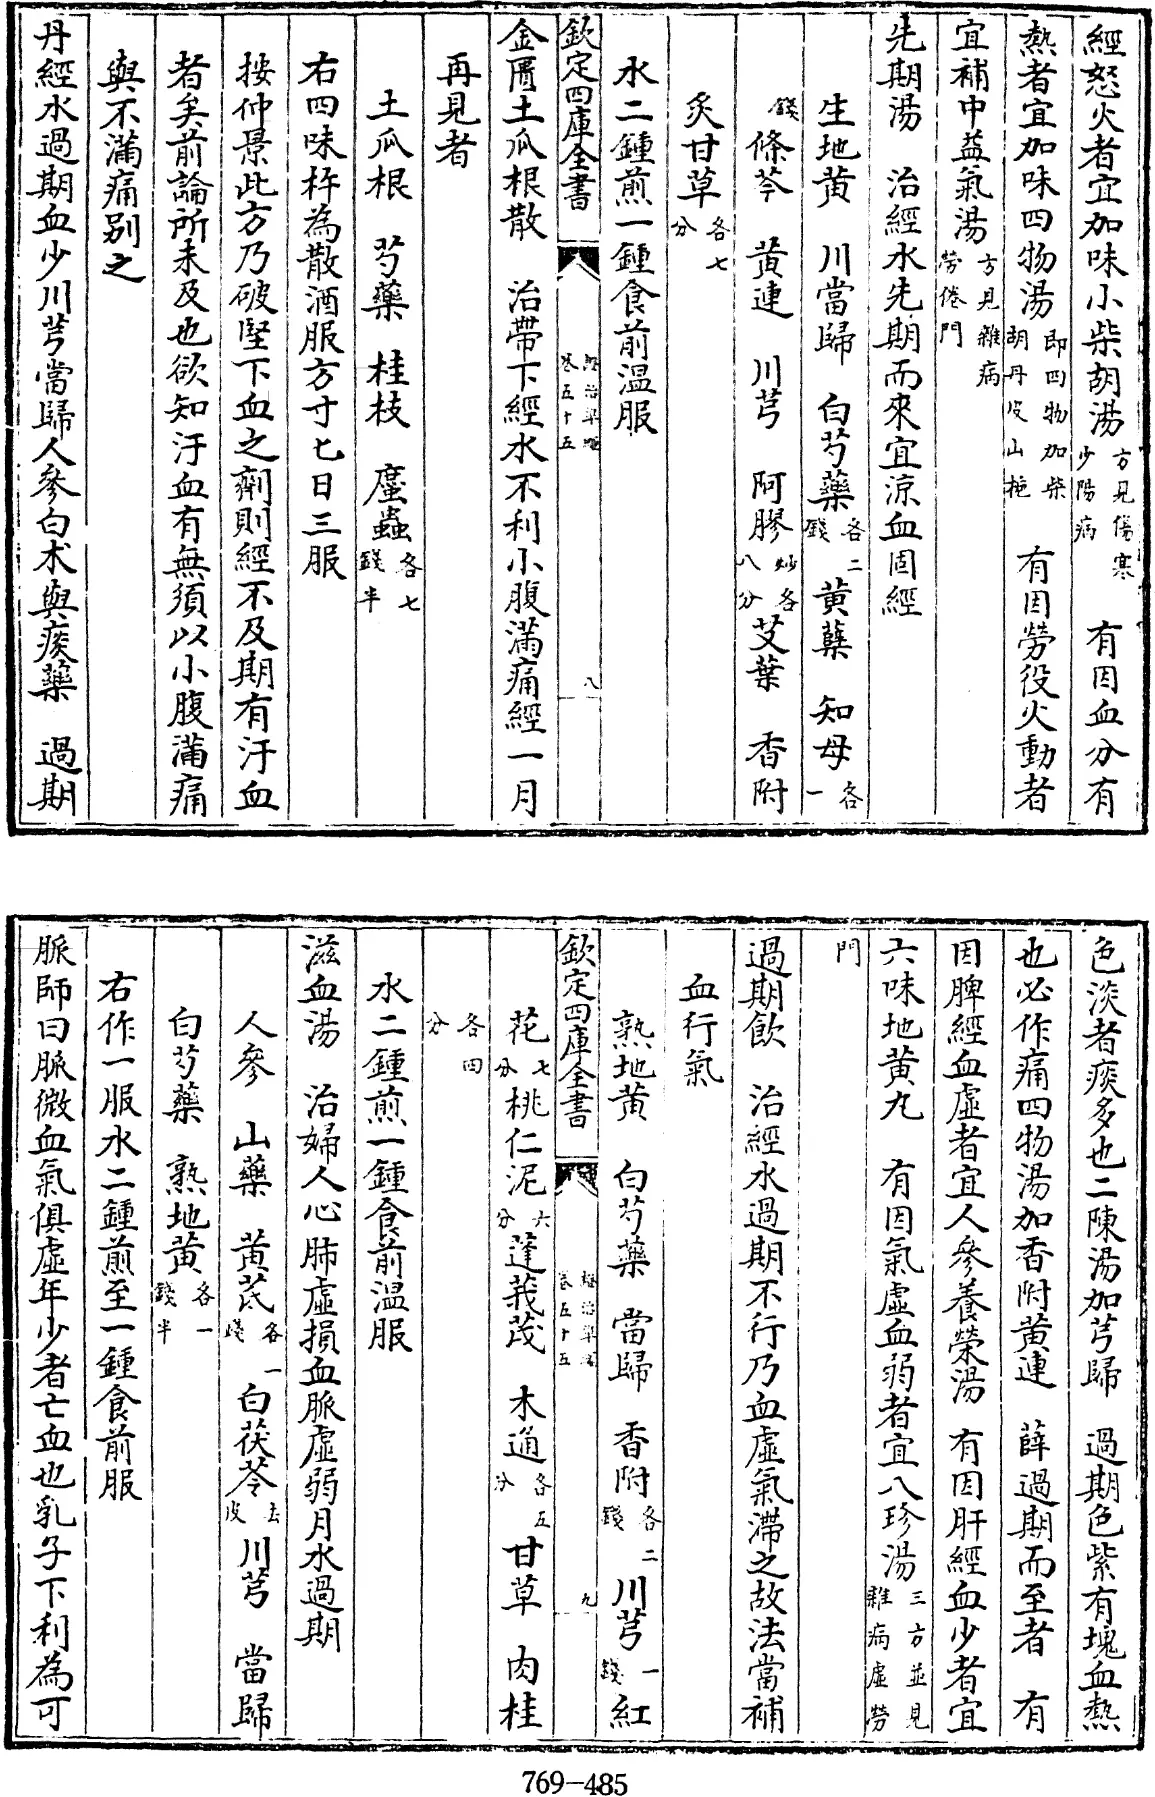 經怒火者宜加味小柴胡湯方見傷寒少陽病　有因血分有
熱者宜加味四物湯即四物加柴胡丹皮山梔　有因勞役火動者
宜補中益氣湯方見雜病勞倦門
先期湯　治經水先期而來宜涼血固經
生地黄　川當歸　白芍藥各二錢　黄蘗　知母各一
錢　條芩　黄連　川芎　阿膠炒各八分　艾葉　香附
炙甘草各七分
水二鍾煎一鍾食前温服
欽定四庫全書　證治準繩卷五十五　八
金匱土瓜根散　治帶下經水不利小腹滿痛經一月
再見者
土瓜根　芍藥　桂枝　䗪蟲各七錢半
右四味杵為散酒服方寸匕日三服
按仲景此方乃破堅下血之劑則經不及期有汙血
者矣前論所未及也欲知汙血有無須以小腹滿痛
與不滿痛别之
丹經水過期血少川芎當歸人參白朮與痰藥　過期
色淡者痰多也二陳湯加芎歸　過期色紫有塊血熱
也必作痛四物湯加香附黄連　薛過期而至者　有
因脾經血虛者宜人參養榮湯　有因肝經血少者宜
六味地黄丸　有因氣虛血弱者宜八珍湯三方並見雜病虛勞
門
過期飲　治經水過期不行乃血虛氣滯之故法當補
血行氣
熟地黄　白芍藥　當歸　香附各二錢　川芎一錢　紅
花七分　桃仁泥六分　蓬莪茂　木通各五分　甘草　肉桂
各四分
水二鍾煎一鍾食前温服
欽定四庫全書　證治準繩卷五十五　九
滋血湯　治婦人心肺虛損血脈虛弱月水過期
人參　山藥　黄芪各一錢　白茯苓去皮　川芎　當歸
白芍藥　熟地黄各一錢半
右作一服水二鍾煎至一鍾食前服
脈師曰脈微血氣俱虛年少者亡血也乳子下利為可
769-485